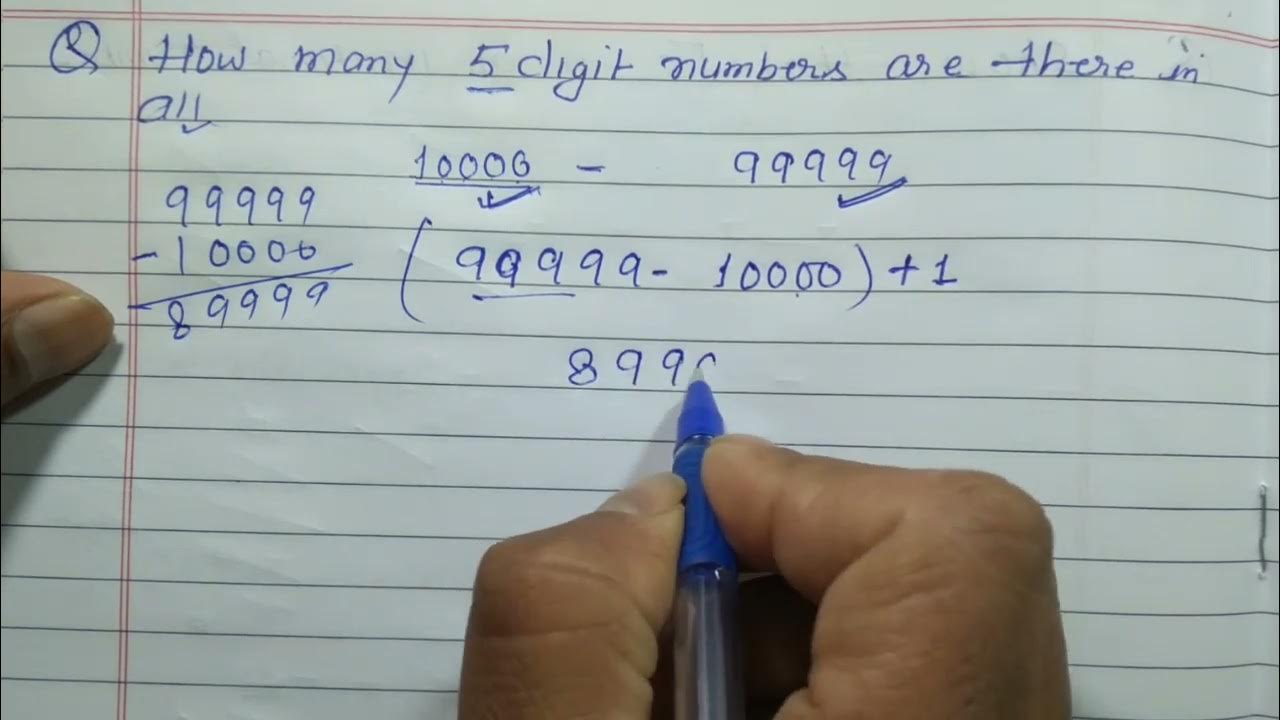 Q How many 5 digit numbers are there in
all
10000 - 99999
99999
- 10000
89999
(99999 - 10000) + 1
899